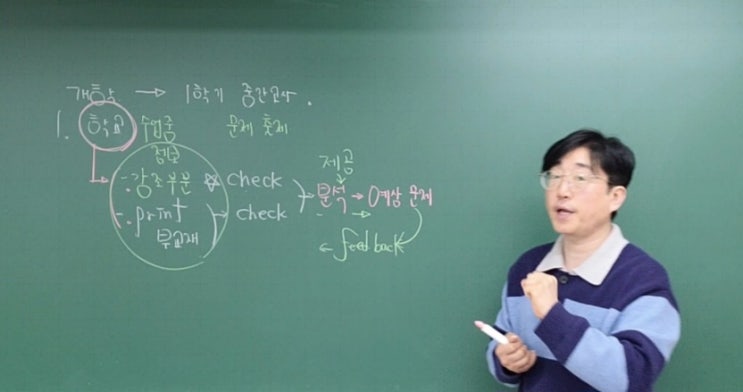 개학 → 1학기 중간고사.
1. 학교 수업중 문제 출제
정보 제공
-. 강조부분 ☆ check → 분석 → 예상 문제
-. print → check
부교재 ← feedback